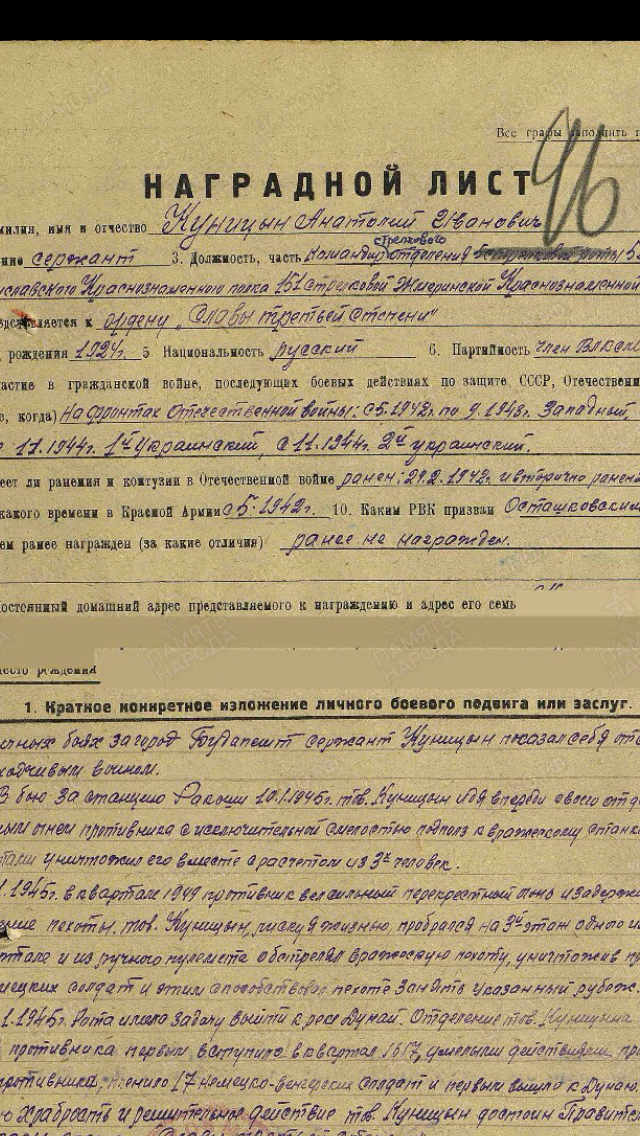 Все графы заполнить п
96
НАГРАДНОЙ ЛИСТ
милия, имя и отчество Куницын Анатолий Иванович
ние сержант 3. Должность, часть Командир стрелкового отделения
иславского Краснознаменного полка 151 стрелковой Жмеринской Краснознаменной
едставляется к ордену „Славы третьей степени"
рождения 1924г. 5 Национальность русский 6. Партийность член ВЛКСМ
частие в гражданской войне, последующих боевых действиях по защите СССР, Отечествени
е, когда) На фронтах Отечественной войны: с 5.1942г. по 9.1943г. Западный,
11.1944г. 1й украинский, с 11.1944г. 2й украинский.
еет ли ранения и контузии в Отечественной войне ранен: 29.2.1942г. и вторично ранен
какого времени в Красной Армии с 5.1942г. 10. Каким РВК призван Осташковским
ем ранее награжден (за какие отличия) ранее не награжден.
остоянный домашний адрес представляемого к награждению и адрес его семь
ПАМЯТЬ НАРОДА
место рождения
1. Краткое конкретное изложение личного боевого подвига или заслуг.
ичных боях за город Будапешт сержант Куницын показал себя отв
ходчивым воином.
В бою за станцию Ракош 10.1.1945г. тов. Куницын идя впереди своего отд
ным огнем противника с исключительной смелостью подполз к вражескому станко
тали уничтожил его вместе с расчетом из 3х человек.
1.1945г. в квартале 1949 противник вел сильный перекрестный огонь и задержи
ение пехоты. тов. Куницын, рискуя жизнью, пробрался на 3й этаж одного из
ртале и из ручного пулемета обстрелял вражескую пехоту, уничтожив
мецких солдат и этим способствовал пехоте занять указанный рубеж.
1.1945г. Рота имела задачу выйти к реке Дунай. Отделение тов. Куницына
противника первым вступило в квартал 1617, умелыми действиями,
противника, пленило 17 немецко-венгерских солдат и первым вышло к Дунаю
ю храбрость и решительное действие тов. Куницын достоин Правител